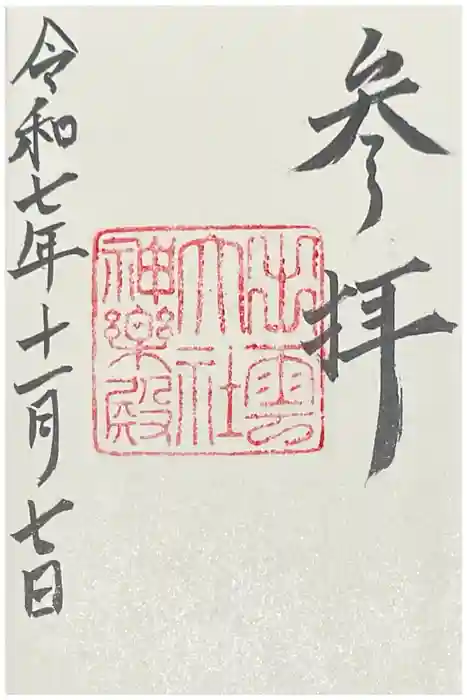 参拝
出雲
大社
神楽殿
令和七年十一月七日